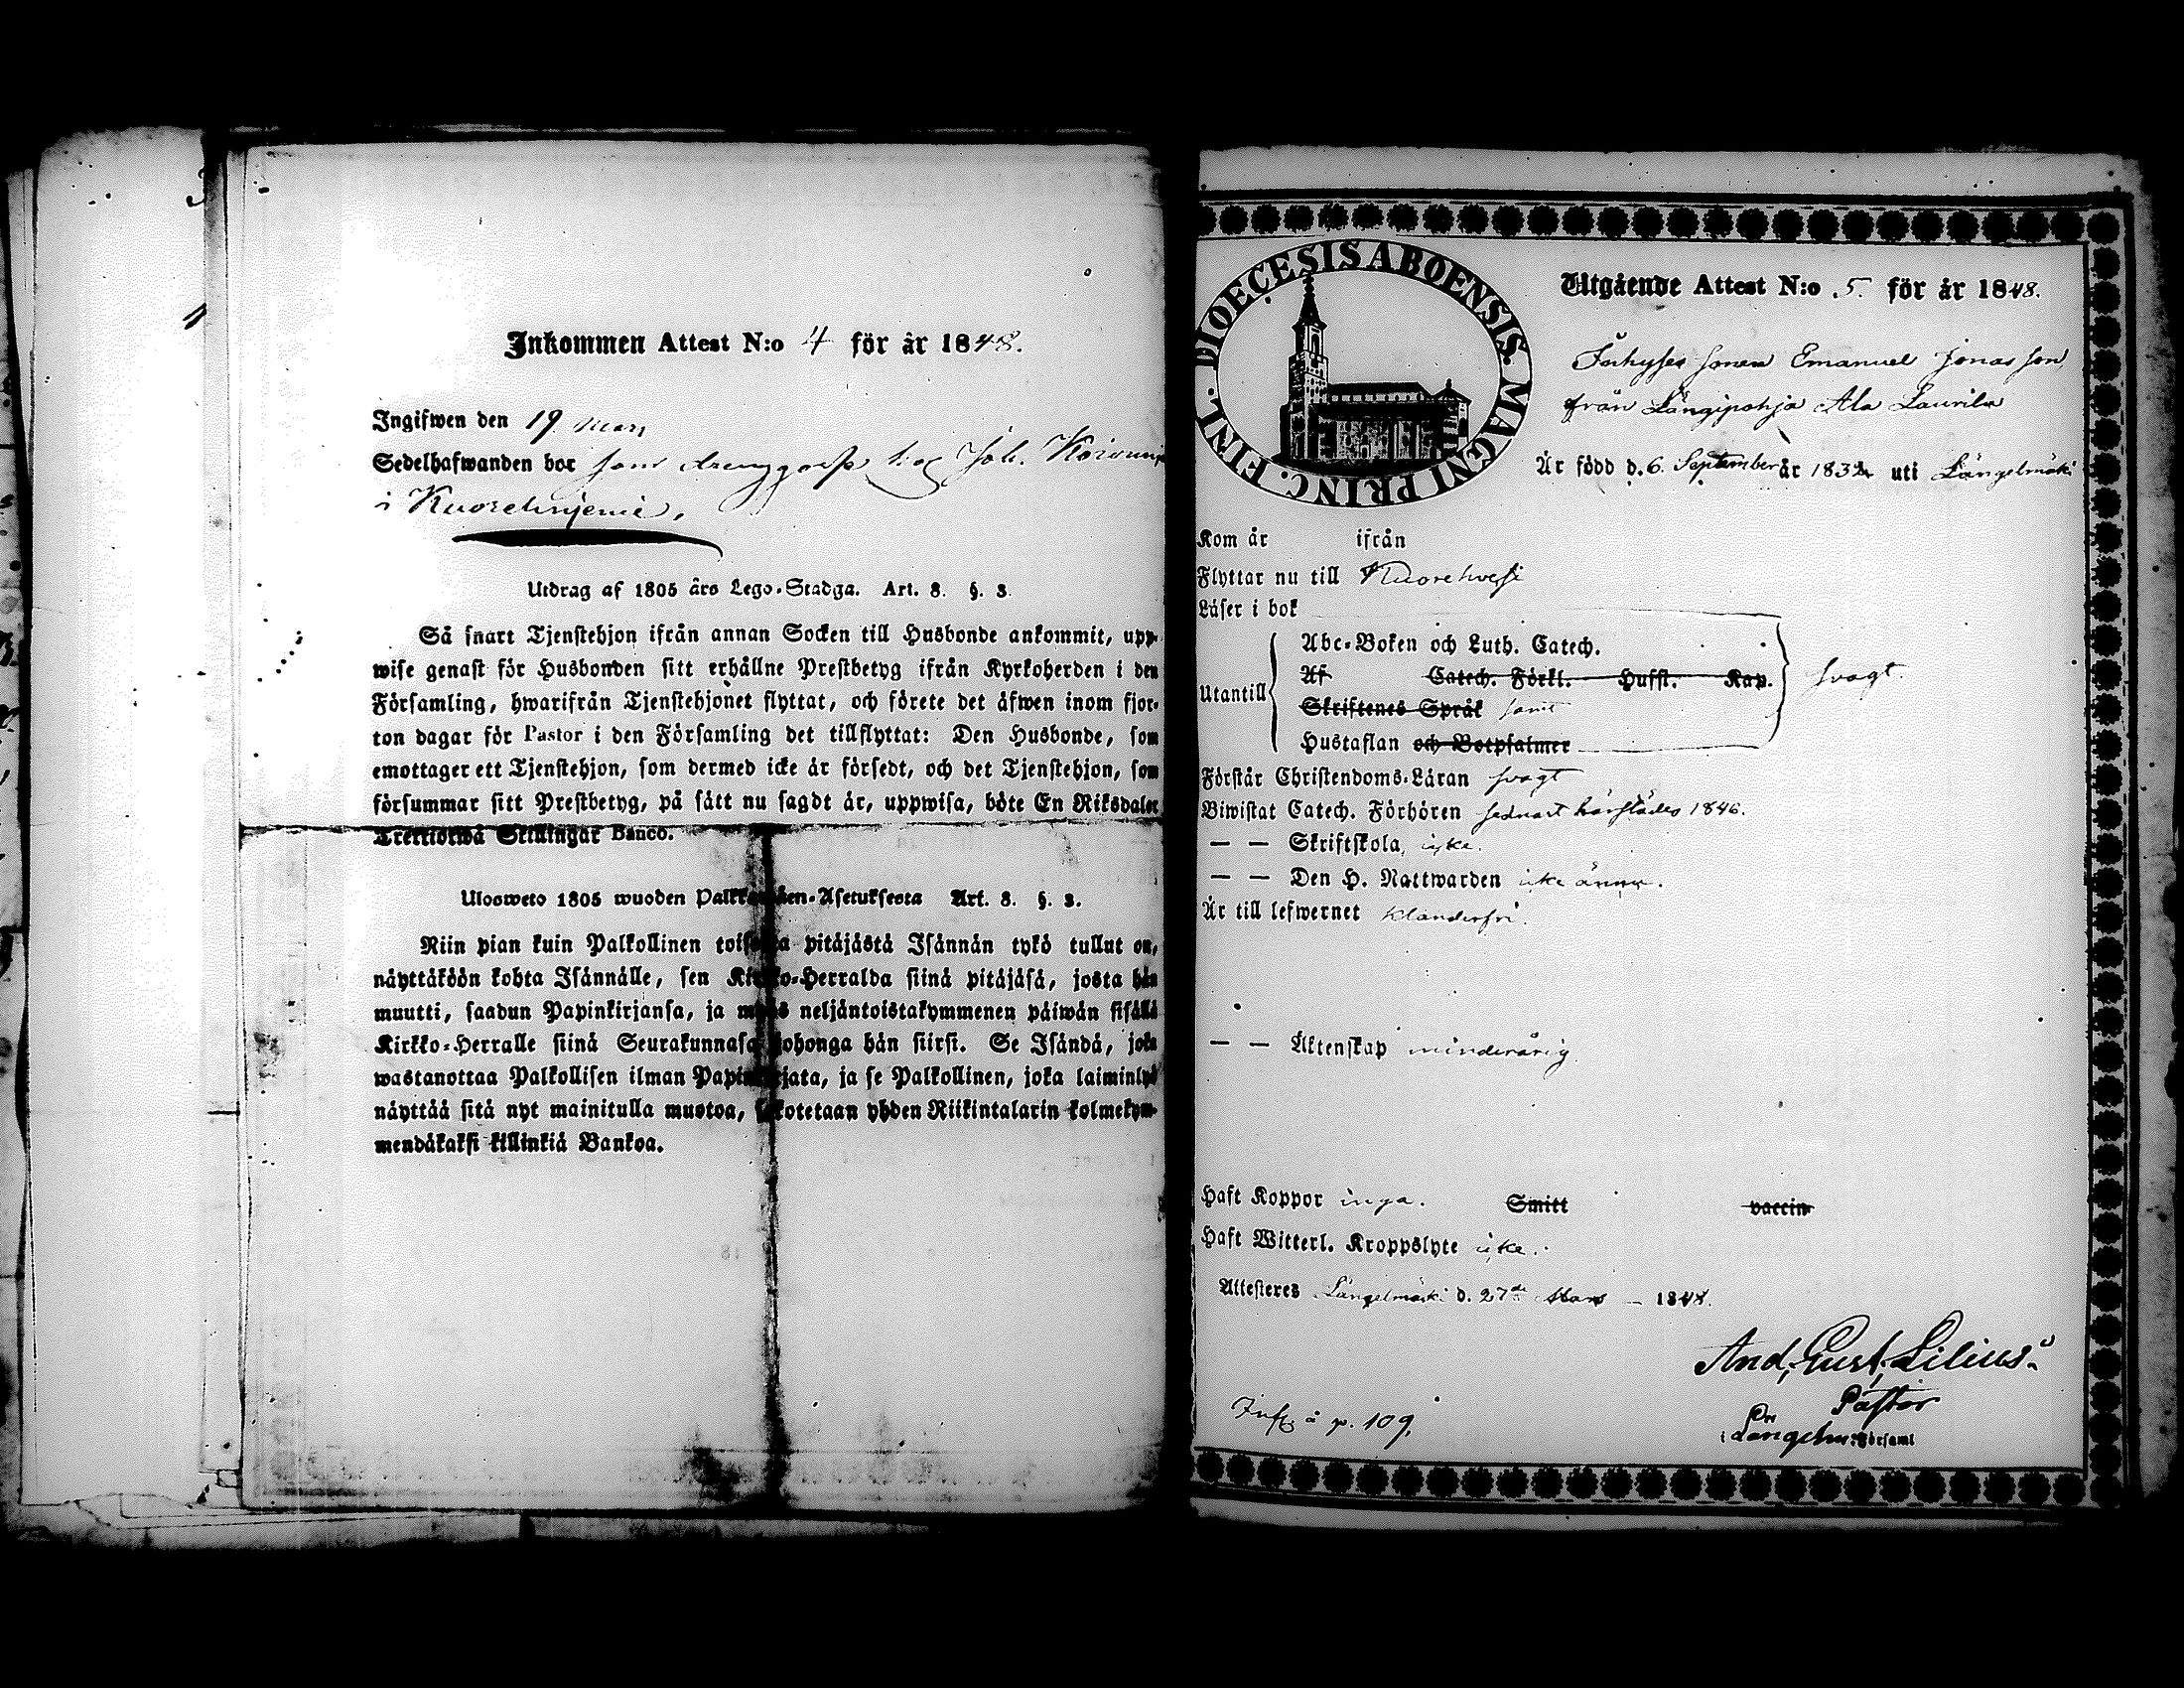 Inkommen Attest N:o 4 för år 1848.
Ingifwen den 19 mars
Sedelhafwanden bor som drenggosse hos Joh.
i
Utdrag af 1805 års Lego-Stadga. Art. 8. §. 3.
Så snart Tjenstehjon ifrån annan Socken till Husbonde ankommit, upp-
wise genast för Husbonden sitt erhållne Prestbetyg ifrån Kyrkoherden i den
Församling, hwarifrån Tjenstehjonet flyttat, och förete det äfwen inom fjor-
ton dagar för Pastor i den Församling det tillflyttat: Den Husbonde, som
emottager ett Tjenstehjon, som dermed icke är försedt, och det Tjenstehjon, som
försummar sitt Prestbetyg, på sätt nu sagdt är, uppwisa, böte En Riksdaler
Trettiotwå Skillingar Banco.
Ulosweto 1805 wuoden Palkkawäen-Asetuksesta Art. 8. §. 3.
Niin pian kuin Palkollinen toisesta pitäjästä Isännän tykö tullut on,
näyttäköön kohta Isännälle, sen Kirkko-Herralda siinä pitäjäsä, josta hän
muutti, saadun Papinkirjansa, ja myös neljäntoistakymmenen päiwän sisällä
Kirkko-Herralle siinä Seurakunnasa johonga hän siirsi. Se Isändä, joka
wastanottaa Palkollisen ilman Papinkirjata, ja se Palkollinen, joka laiminlyö
näyttää sitä nyt mainitulla muotoa, sakotetaan yhden Riikintalarin kolmekym-
mendäkaksi killinkiä Bankoa.
DIOECESIS ABOENSIS. MAGNI PRINC. FINL.
Utgående Attest N:o 5. för år 1848.
Inhyses sonen Emanuel Jonasson
från Längipohja Ala Laurila
Är född d. 6. September år 1832 uti Längelmäki
Kom år ifrån
Flyttar nu till Kuorehvesi
Läser i bok
Abc-Boken och Luth. Catech.
Af Catech. Förkl. Hufst. Kap.
Utantill svagt.
Skriftenes Språk samt
Hustaflan och Botpsalmer
Förstår Christendoms-Läran svagt
Biwistat Catech. Förhören sednast härstädes 1846.
— — Skriftskola, icke.
— — Den H. Nattwarden icke ännu.
Är till lefwernet klanderfri.
— — Äktenskap minderårig.
Haft Koppor inga. Smitt vaccin
Haft Witterl. Kroppslyte icke.
Attesteres Längelmäki d. 27de Mars — 1848.
And. Gust. Lilius.
Pastor
i Längelm. Församl
Inf. å p. 109.